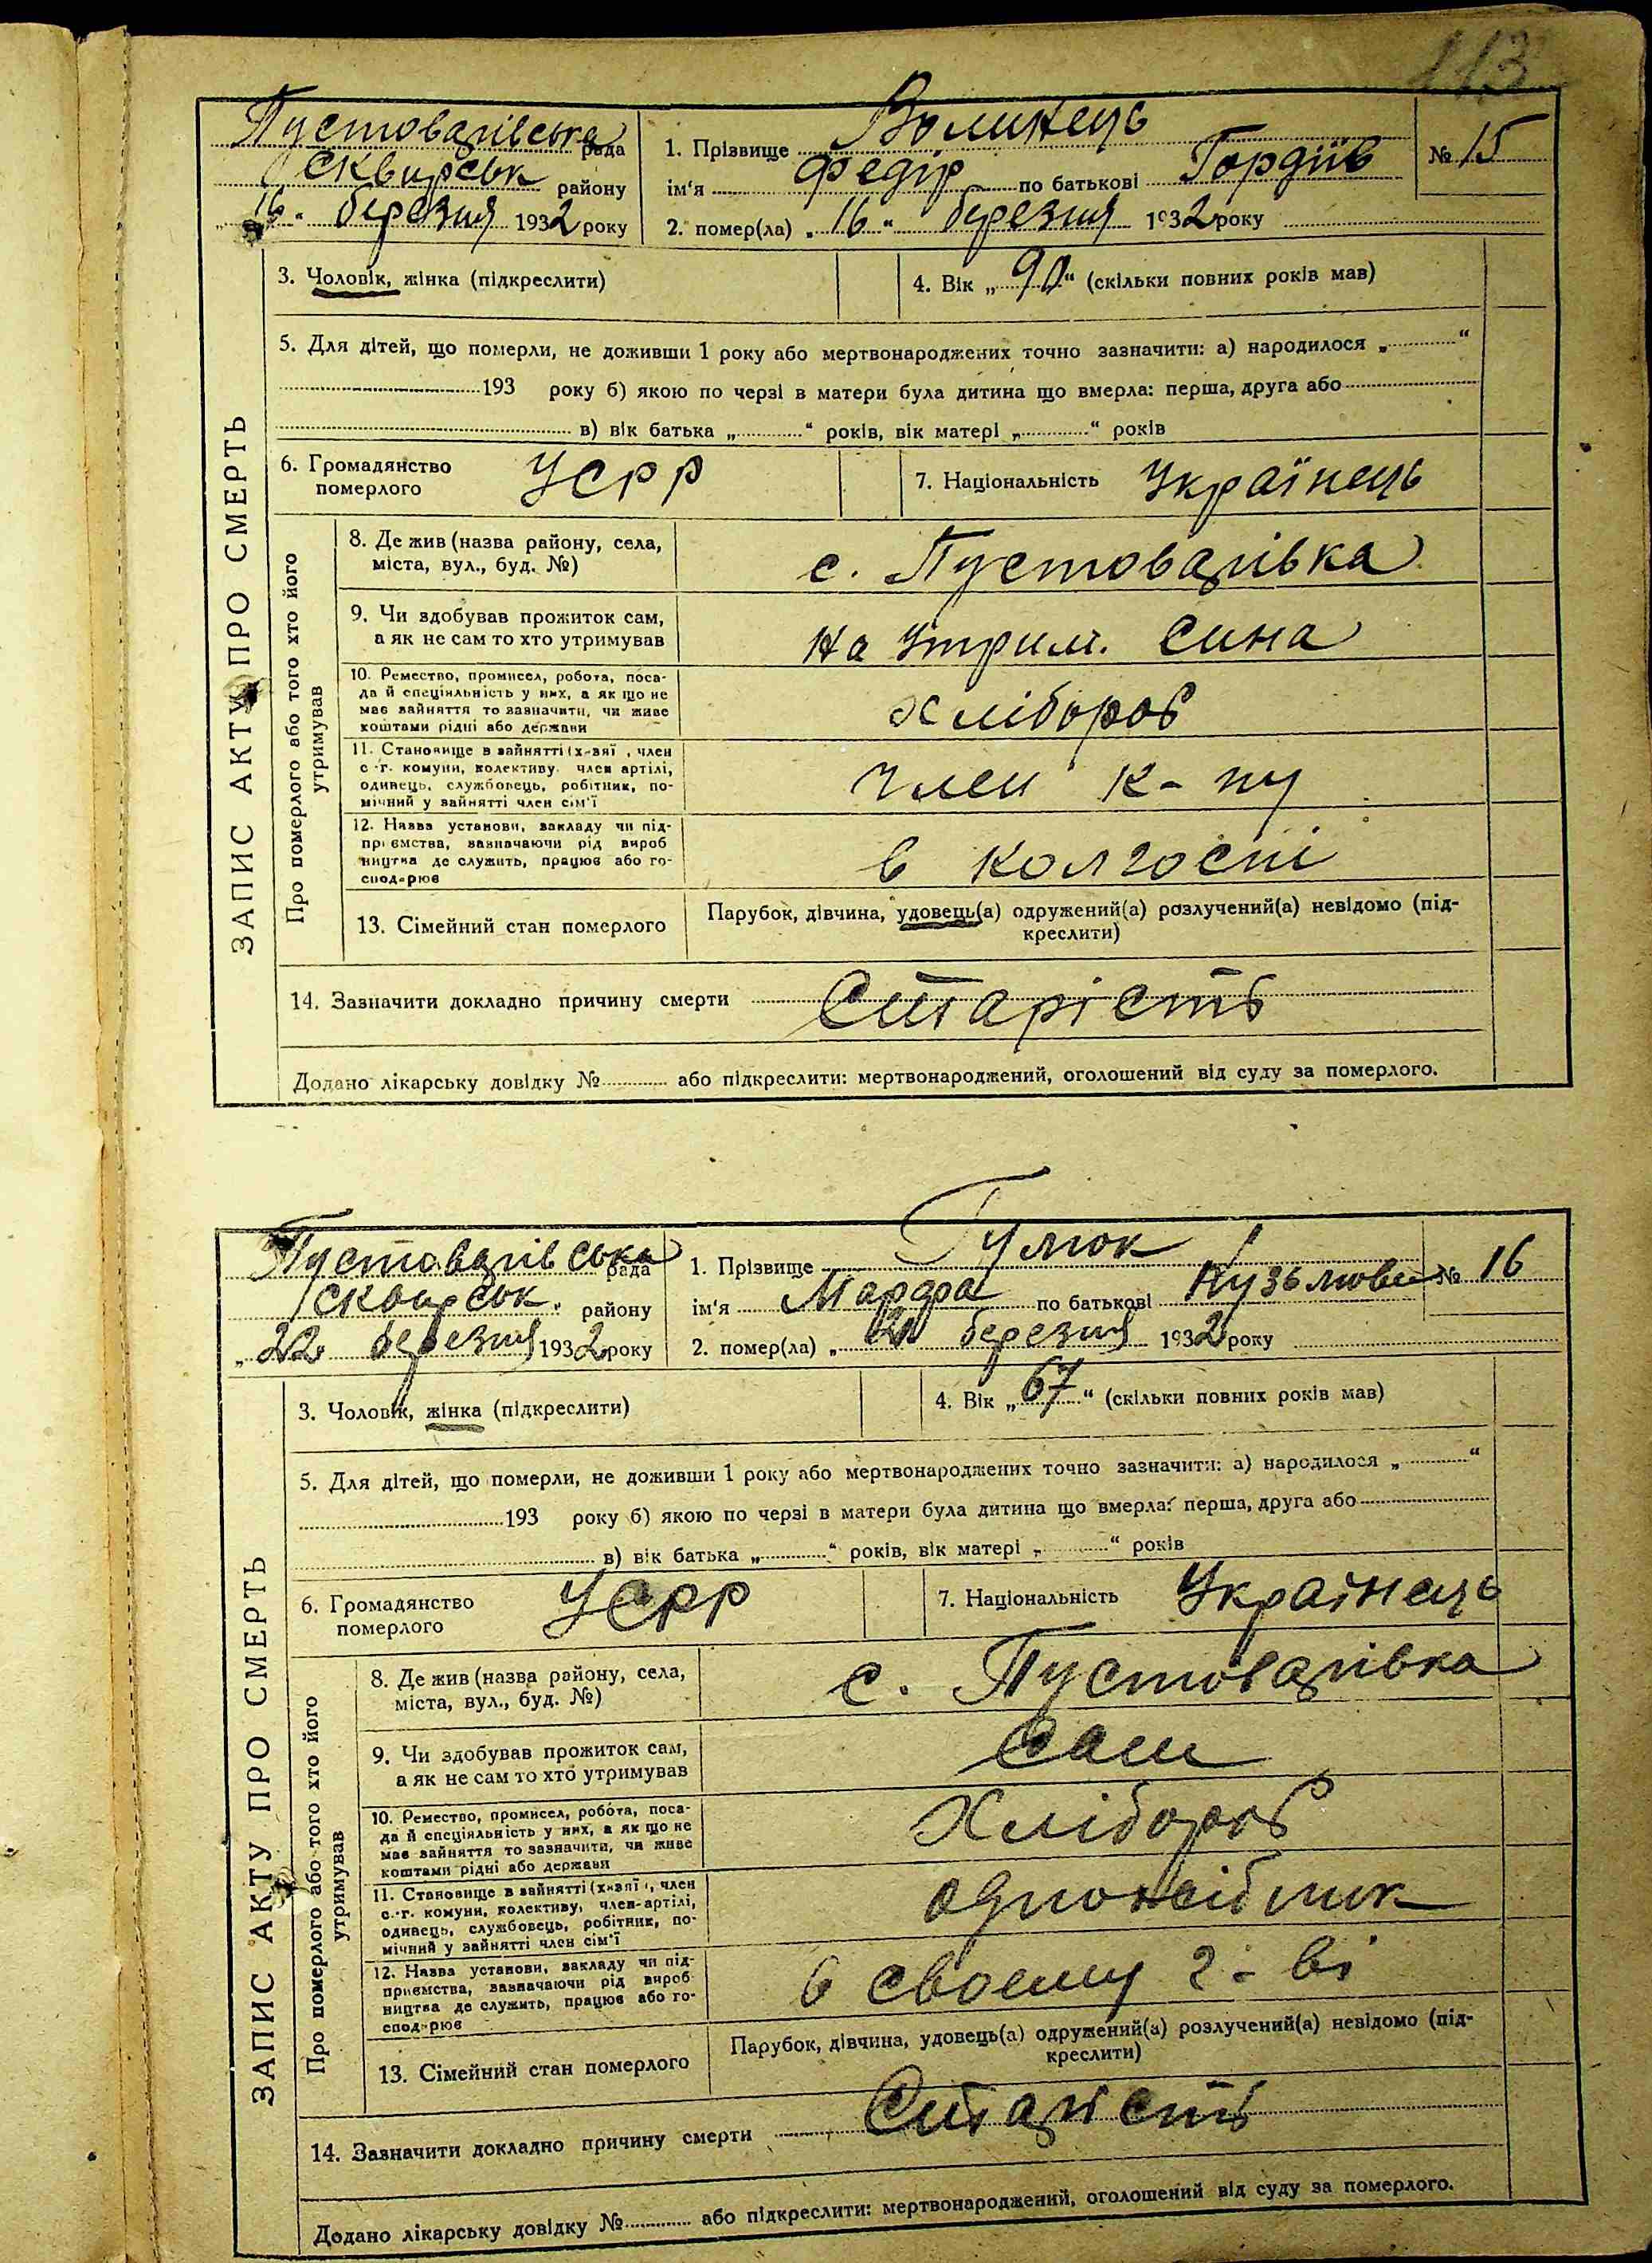 113
ЗАПИС АКТУ ПРО СМЕРТЬ
Пустоварівська рада
Сквирськ району
„16“ березня 1932 року
1. Прізвище Волинець
ім'я Федір по батькові Гордіїв
№ 15
2. помер(ла) „16“ березня 1932 року
3. Чоловік, жінка (підкреслити)
4. Вік „90“ (скільки повних років мав)
5. Для дітей, що померли, не доживши 1 року або мертвонароджених точно зазначити: а) народилося „ “
193 року б) якою по черзі в матери була дитина що вмерла: перша, друга або
в) вік батька „ “ років, вік матері „ “ років
6. Громадянство
померлого
УСРР
7. Національність Українець
Про померлого або того хто його
утримував
8. Де жив (назва району, села,
міста, вул., буд. №)
с. Пустоварівка
9. Чи здобував прожиток сам,
а як не сам то хто утримував
на утрим. сина
10. Ремество, промисел, робота, поса-
да й спеціяльність у них, а як що не
має зайняття то зазначити, чи живе
коштами рідні або держави
хлібороб
11. Становище в зайнятті (х-вяї, член
с.-г. комуни, колективу, член артілі,
одинець, службовець, робітник, по-
мічний у зайнятті член сім'ї
член к-ну
12. Назва установи, закладу чи під-
приємства, зазначаючи рід вироб
ництва де служить, працює або го-
сподарює
в колгоспі
13. Сімейний стан померлого
Парубок, дівчина, удовець(а) одружений(а) розлучений(а) невідомо (під-
креслити)
14. Зазначити докладно причину смерти Старість
Додано лікарську довідку № або підкреслити: мертвонароджений, оголошений від суду за померлого.
ЗАПИС АКТУ ПРО СМЕРТЬ
Пустоварівська рада
Сквирськ. району
„22 березня 1932 року
1. Прізвище Гулюк
ім'я Марфа по батькові Кузьмови
№ 16
2. помер(ла) „21 березня 1932 року
3. Чоловік, жінка (підкреслити)
4. Вік „67“ (скільки повних років мав)
5. Для дітей, що померли, не доживши 1 року або мертвонароджених точно зазначити: а) народилося „ “
193 року б) якою по черзі в матери була дитина що вмерла: перша, друга або
в) вік батька „ “ років, вік матері „ “ років
6. Громадянство
померлого
УСРР
7. Національність Українець
Про померлого або того хто його
утримував
8. Де жив (назва району, села,
міста, вул., буд. №)
с. Пустоварівка
9. Чи здобував прожиток сам,
а як не сам то хто утримував
Сам
10. Ремество, промисел, робота, поса-
да й спеціяльність у них, а як що не
має зайняття то зазначити, чи живе
коштами рідні або держави
Хлібороб
11. Становище в зайнятті (х-вяї, член
с.-г. комуни, колективу, член-артілі,
одинець, службовець, робітник, по-
мічний у зайнятті член сім'ї
одноосібник
12. Назва установи, закладу чи під-
приємства, зазначаючи рід вироб
ництва де служить, працює або го-
сподарює
в своєму г-ві
13. Сімейний стан померлого
Парубок, дівчина, удовець(а) одружений(а) розлучений(а) невідомо (під-
креслити)
14. Зазначити докладно причину смерти Старість
Додано лікарську довідку № або підкреслити: мертвонароджений, оголошений від суду за померлого.